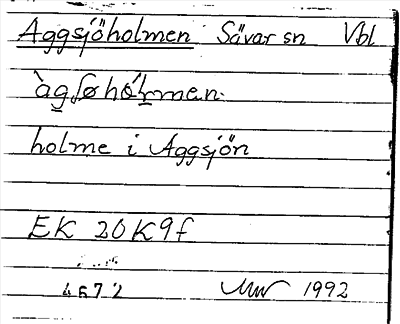 Aggsjöholmen Sävar sn Vbl
holme i Aggsjön
EK 20K9f
4672 1992